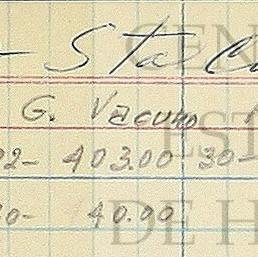 - Sta C
G. Vacuno
02- 403.00 30-
0- 40.00
CEN
EST
DE H